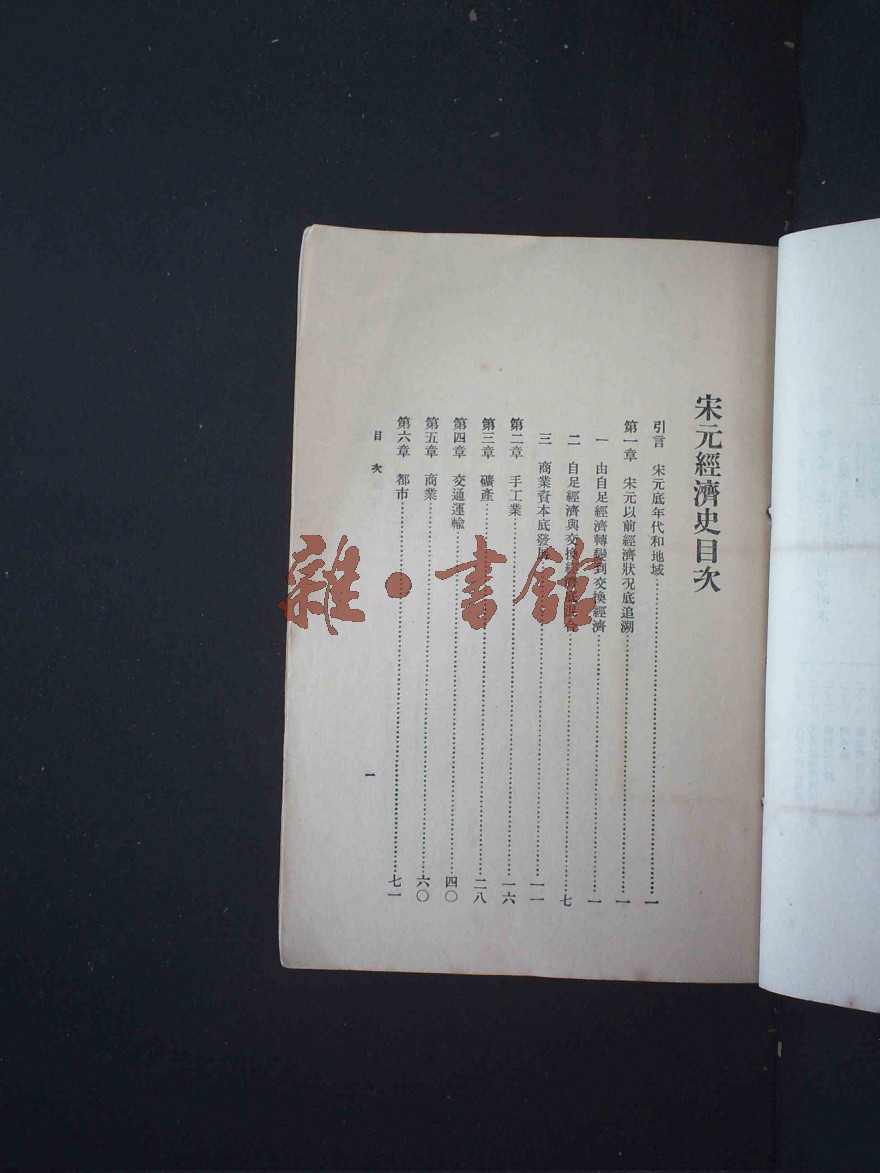 宋元經濟史目次
引言 宋元底年代和地域……一
第一章 宋元以前經濟狀況底追溯……一
一 由自足經濟轉變到交換經濟……一
二 自足經濟與交換經濟底混合……七
三 商業資本底發展……一一
第二章 手工業……一六
第三章 礦產……二八
第四章 交通運輸……四〇
第五章 商業……六〇
第六章 都市……七一
目次
一
雜·書館